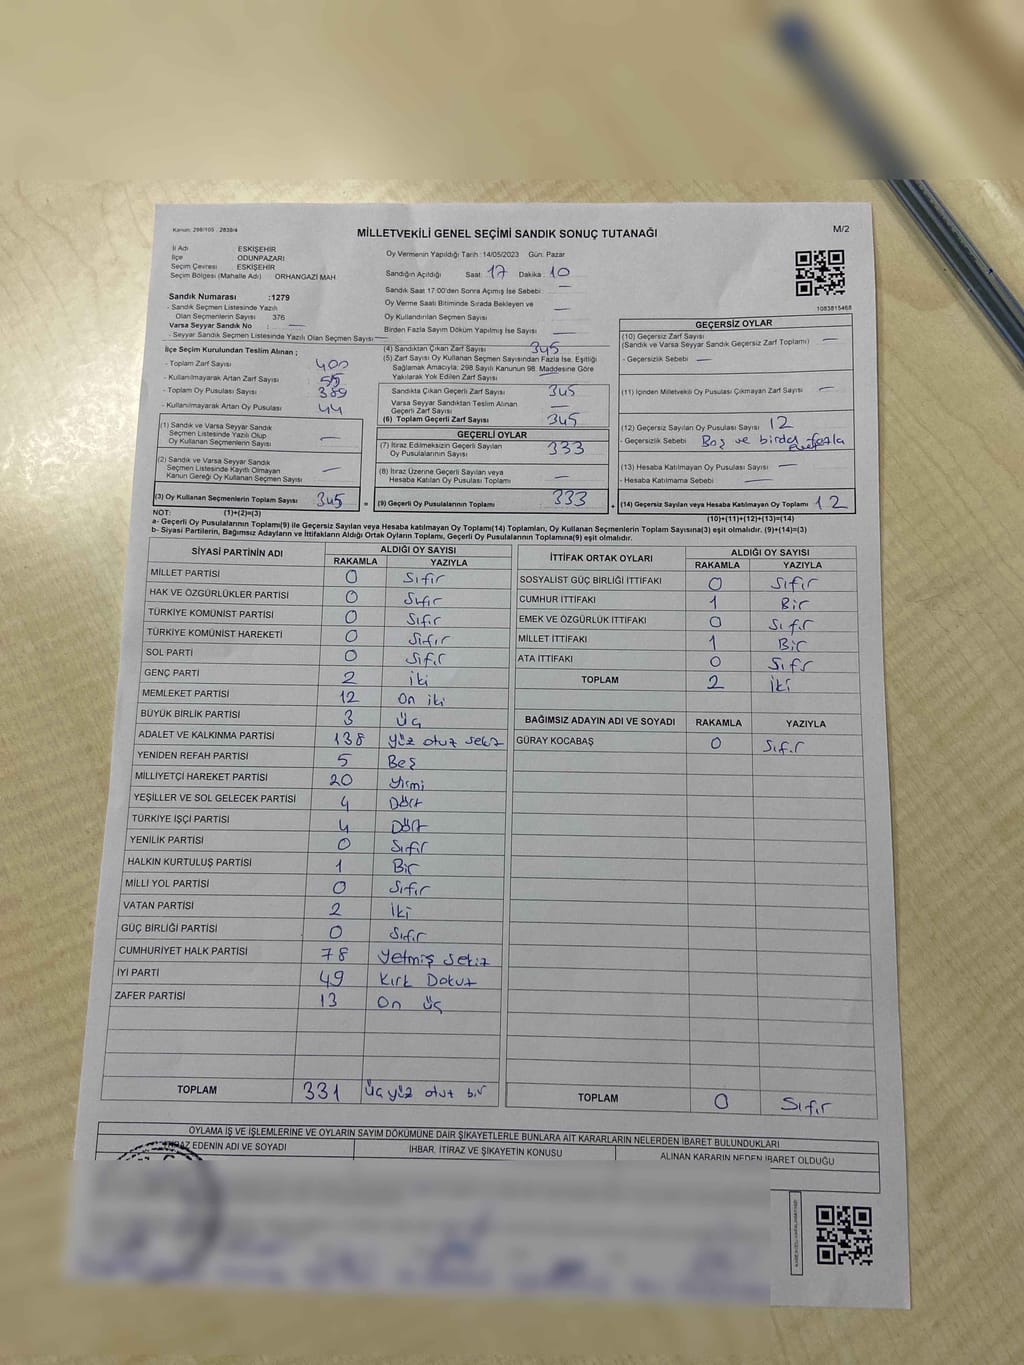 Kanun: 298/105 . 2839/4
MİLLETVEKİLİ GENEL SEÇİMİ SANDIK SONUÇ TUTANAĞI
M/2
İl Adı : ESKİŞEHİR
İlçe : ODUNPAZARI
Seçim Çevresi : ESKİŞEHİR
Seçim Bölgesi (Mahalle Adı) : ORHANGAZİ MAH
Sandık Numarası :1279
- Sandık Seçmen Listesinde Yazılı
Olan Seçmenlerin Sayısı : 376
Varsa Seyyar Sandık No : —
- Seyyar Sandık Seçmen Listesinde Yazılı Olan Seçmen Sayısı: —
Oy Vermenin Yapıldığı Tarih :14/05/2023 Gün: Pazar
Sandığın Açıldığı Saat: 17 Dakika: 10
Sandık Saat 17:00'den Sonra Açımış İse Sebebi : —
Oy Verme Saati Bitiminde Sırada Bekleyen ve
Oy Kullandırılan Seçmen Sayısı —
Birden Fazla Sayım Döküm Yapılmış İse Sayısı —
1083815468
İlçe Seçim Kurulundan Teslim Alınan ;
- Toplam Zarf Sayısı 400
- Kullanılmayarak Artan Zarf Sayısı : 55
- Toplam Oy Pusulası Sayısı : 389
- Kullanılmayarak Artan Oy Pusulası : 44
(1) Sandık ve Varsa Seyyar Sandık
Seçmen Listesinde Yazılı Olup
Oy Kullanan Seçmenlerin Sayısı —
(2) Sandık ve Varsa Seyyar Sandık
Seçmen Listesinde Kayıtlı Olmayan
Kanun Gereği Oy Kullanan Seçmen Sayısı —
(3) Oy Kullanan Seçmenlerin Toplam Sayısı 345
(4) Sandıktan Çıkan Zarf Sayısı 345
(5) Zarf Sayısı Oy Kullanan Seçmen Sayısından Fazla İse, Eşitliği
Sağlamak Amacıyla; 298 Sayılı Kanunun 98. Maddesine Göre
Yakılarak Yok Edilen Zarf Sayısı —
Sandıkta Çıkan Geçerli Zarf Sayısı 345
Varsa Seyyar Sandıktan Teslim Alınan
Geçerli Zarf Sayısı —
(6) Toplam Geçerli Zarf Sayısı: 345
GEÇERLİ OYLAR
(7) İtiraz Edilmeksizin Geçerli Sayılan
Oy Pusulalarının Sayısı 333
(8) İtiraz Üzerine Geçerli Sayılan veya
Hesaba Katılan Oy Pusulası Toplamı —
= (9) Geçerli Oy Pusulalarının Toplamı 333 +
GEÇERSİZ OYLAR
(10) Geçersiz Zarf Sayısı
(Sandık ve Varsa Seyyar Sandık Geçersiz Zarf Toplamı) —
- Geçersizlik Sebebi —
(11) İçinden Milletvekili Oy Pusulası Çıkmayan Zarf Sayısı —
(12) Geçersiz Sayılan Oy Pusulası Sayısı 12
- Geçersizlik Sebebi Boş ve birden fazla
(13) Hesaba Katılmayan Oy Pusulası Sayısı —
- Hesaba Katılmama Sebebi —
(14) Geçersiz Sayılan veya Hesaba Katılmayan Oy Toplamı 12
NOT: (1)+(2)=(3)
(10)+(11)+(12)+(13)=(14)
a- Geçerli Oy Pusulalarının Toplamı(9) ile Geçersiz Sayılan veya Hesaba katılmayan Oy Toplamı(14) Toplamları, Oy Kullanan Seçmenlerin Toplam Sayısına(3) eşit olmalıdır. (9)+(14)=(3)
b- Siyasi Partilerin, Bağımsız Adayların ve İttifakların Aldığı Ortak Oyların Toplamı, Geçerli Oy Pusulalarının Toplamına(9) eşit olmalıdır.
SİYASİ PARTİNİN ADI ALDIĞI OY SAYISI
RAKAMLA YAZIYLA
MİLLET PARTİSİ 0 Sıfır
HAK VE ÖZGÜRLÜKLER PARTİSİ 0 Sıfır
TÜRKİYE KOMÜNİST PARTİSİ 0 Sıfır
TÜRKİYE KOMÜNİST HAREKETİ 0 Sıfır
SOL PARTİ 0 Sıfır
GENÇ PARTİ 2 iki
MEMLEKET PARTİSİ 12 On iki
BÜYÜK BİRLİK PARTİSİ 3 üç
ADALET VE KALKINMA PARTİSİ 138 yüz otuz sekiz
YENİDEN REFAH PARTİSİ 5 Beş
MİLLİYETÇİ HAREKET PARTİSİ 20 yirmi
YEŞİLLER VE SOL GELECEK PARTİSİ 4 Dört
TÜRKİYE İŞÇİ PARTİSİ 4 Dört
YENİLİK PARTİSİ 0 Sıfır
HALKIN KURTULUŞ PARTİSİ 1 Bir
MİLLİ YOL PARTİSİ 0 Sıfır
VATAN PARTİSİ 2 iki
GÜÇ BİRLİĞİ PARTİSİ 0 Sıfır
CUMHURİYET HALK PARTİSİ 78 Yetmiş Sekiz
İYİ PARTİ 49 Kırk Dokuz
ZAFER PARTİSİ 13 On üç
TOPLAM 331 üçyüz otuz bir
İTTİFAK ORTAK OYLARI ALDIĞI OY SAYISI
RAKAMLA YAZIYLA
SOSYALİST GÜÇ BİRLİĞİ İTTİFAKI 0 Sıfır
CUMHUR İTTİFAKI 1 Bir
EMEK VE ÖZGÜRLÜK İTTİFAKI 0 Sıfır
MİLLET İTTİFAKI 1 Bir
ATA İTTİFAKI 0 Sıfır
TOPLAM 2 iki
BAĞIMSIZ ADAYIN ADI VE SOYADI RAKAMLA YAZIYLA
GÜRAY KOCABAŞ 0 Sıfır
TOPLAM 0 Sıfır
OYLAMA İŞ VE İŞLEMLERİNE VE OYLARIN SAYIM DÖKÜMÜNE DAİR ŞİKAYETLERLE BUNLARA AİT KARARLARIN NELERDEN İBARET BULUNDUKLARI
İTİRAZ EDENİN ADI VE SOYADI İHBAR, İTİRAZ VE ŞİKAYETİN KONUSU ALINAN KARARIN NEDEN İBARET OLDUĞU